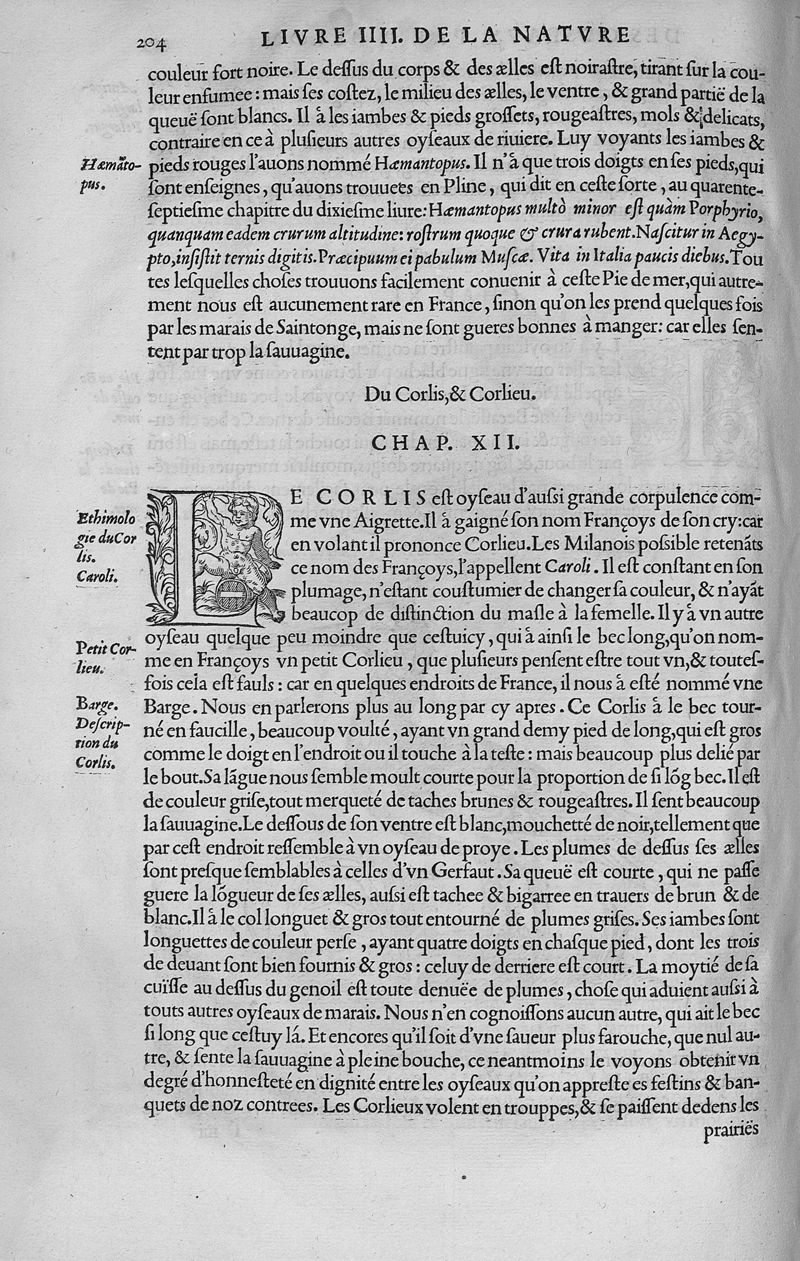 204
LIVRE IIII. DE LA NATVRE
couleur fort noire. Le deſſus du corps & des ælles eſt noiraſtre, tirant ſur la cou-
leur enfumee : mais ſes coſtez, le milieu des ælles, le ventre, & grand partië de la
queuë ſont blancs. Il á les iambes & pieds groſſets, rougeaſtres, mols & delicats,
contraire en ce à pluſieurs autres oyſeaux de riuiere. Luy voyants les iambes &
Hæmāto-
pus.
pieds rouges l'auons nommé Hæmantopus. Il n'á que trois doigts en ſes pieds, qui
ſont enſeignes, qu'auons trouuees en Pline, qui dit en ceſte ſorte, au quarente-
ſeptieſme chapitre du dixieſme liure: Hæmantopus multò minor eſt quàm Porphyrio,
quanquam eadem crurum altitudine: roſtrum quoque & crura rubent. Naſcitur in Aegy-
pto, inſiſtit ternis digitis. Præcipuum ei pabulum Muſcæ. Vita in Italia paucis diebus. Tou
tes leſquelles choſes trouuons facilement conuenir à ceſte Pie de mer, qui autre-
ment nous eſt aucunement rare en France, ſinon qu'on les prend quelques fois
par les marais de Saintonge, mais ne ſont gueres bonnes à manger: car elles ſen-
tent par trop la ſauuagine.
Du Corlis, & Corlieu.
CHAP. XII.
Ethimolo
gie du Cor
lis.
Caroli.
LE CORLIS eſt oyſeau d'auſsi grande corpulence com-
me vne Aigrette. Il á gaigné ſon nom Françoys de ſon cry: car
en volant il prononce Corlieu. Les Milanois poſsible retenāts
ce nom des Françoys, l'appellent Caroli. Il eſt conſtant en ſon
plumage, n'eſtant couſtumier de changer ſa couleur, & n'ayāt
beaucop de diſtinction du maſle à la femelle. Il y á vn autre
Petit Cor-
lieu.
oyſeau quelque peu moindre que ceſtuicy, qui à ainſi le bec long, qu'on nom-
me en Françoys vn petit Corlieu, que pluſieurs penſent eſtre tout vn, & touteſ-
fois cela eſt fauls : car en quelques endroits de France, il nous á eſté nommé vne
Barge.
Deſcrip-
tion du
Corlis.
Barge. Nous en parlerons plus au long par cy apres. Ce Corlis á le bec tour-
né en faucille, beaucoup voulté, ayant vn grand demy pied de long, qui eſt gros
comme le doigt en l'endroit ou il touche à la teſte : mais beaucoup plus delié par
le bout. Sa lāgue nous ſemble moult courte pour la proportion de ſi lōg bec. Il eſt
de couleur griſe, tout merqueté de taches brunes & rougeaſtres. Il ſent beaucoup
la ſauuagine. Le deſſous de ſon ventre eſt blanc, mouchetté de noir, tellement que
par ceſt endroit reſſemble à vn oyſeau de proye. Les plumes de deſſus ſes ælles
ſont preſque ſemblables à celles d'vn Gerfaut. Sa queuë eſt courte, qui ne paſſe
guere la lōgueur de ſes ælles, auſsi eſt tachee & bigarree en trauers de brun & de
blanc. Il à le col longuet & gros tout entourné de plumes griſes. Ses iambes ſont
longuettes de couleur perſe, ayant quatre doigts en chaſque pied, dont les trois
de deuant ſont bien fournis & gros : celuy de derriere eſt court. La moytié de ſa
cuiſſe au deſſus du genoil eſt toute denuëe de plumes, choſe qui aduient auſsi à
touts autres oyſeaux de marais. Nous n'en cognoiſſons aucun autre, qui ait le bec
ſi long que ceſtuy lá. Et encores qu'il ſoit d'vne ſaueur plus farouche, que nul au-
tre, & ſente la ſauuagine à pleine bouche, ce neantmoins le voyons obtenir vn
degré d'honneſteté en dignité entre les oyſeaux qu'on appreſte es feſtins & ban-
quets de noz contrees. Les Corlieux volent en trouppes, & ſe paiſſent dedens les
prairiës